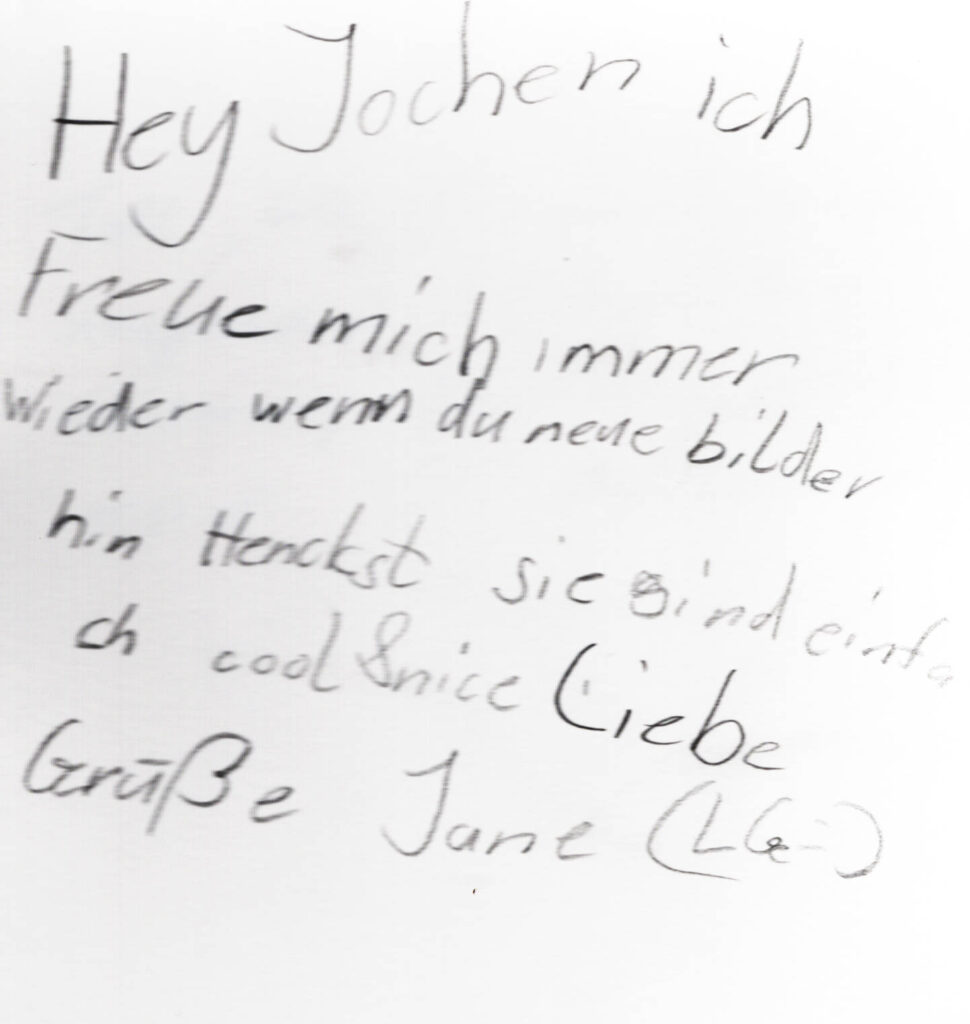 Hey Jochen ich
Freue mich immer
wieder wenn du neue bilder
hin Henckst sie sind einfa
ch cool & nice Liebe
Grüße Jane (LG